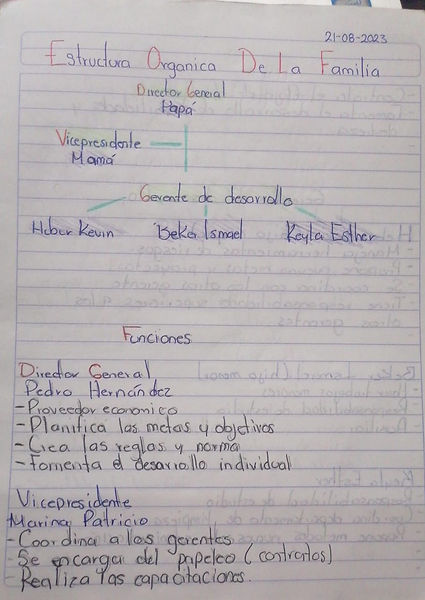 21-08-2023
Estructura Organica De La Familia
Director General
Papá
Vicepresidente
Mamá
Gerente de desarrollo
Heber Kevin Beka Ismael Keyla Esther
Funciones
Director General
Pedro Hernández
- Proveedor economico
- Planifica las metas y objetivos
- Crea las reglas y norma
- Fomenta el desarrollo individual
Vicepresidente
Marina Patricio
- Coordina a los gerentes
- Se encarga del papeleo (contratos)
- Realiza las capacitaciones.